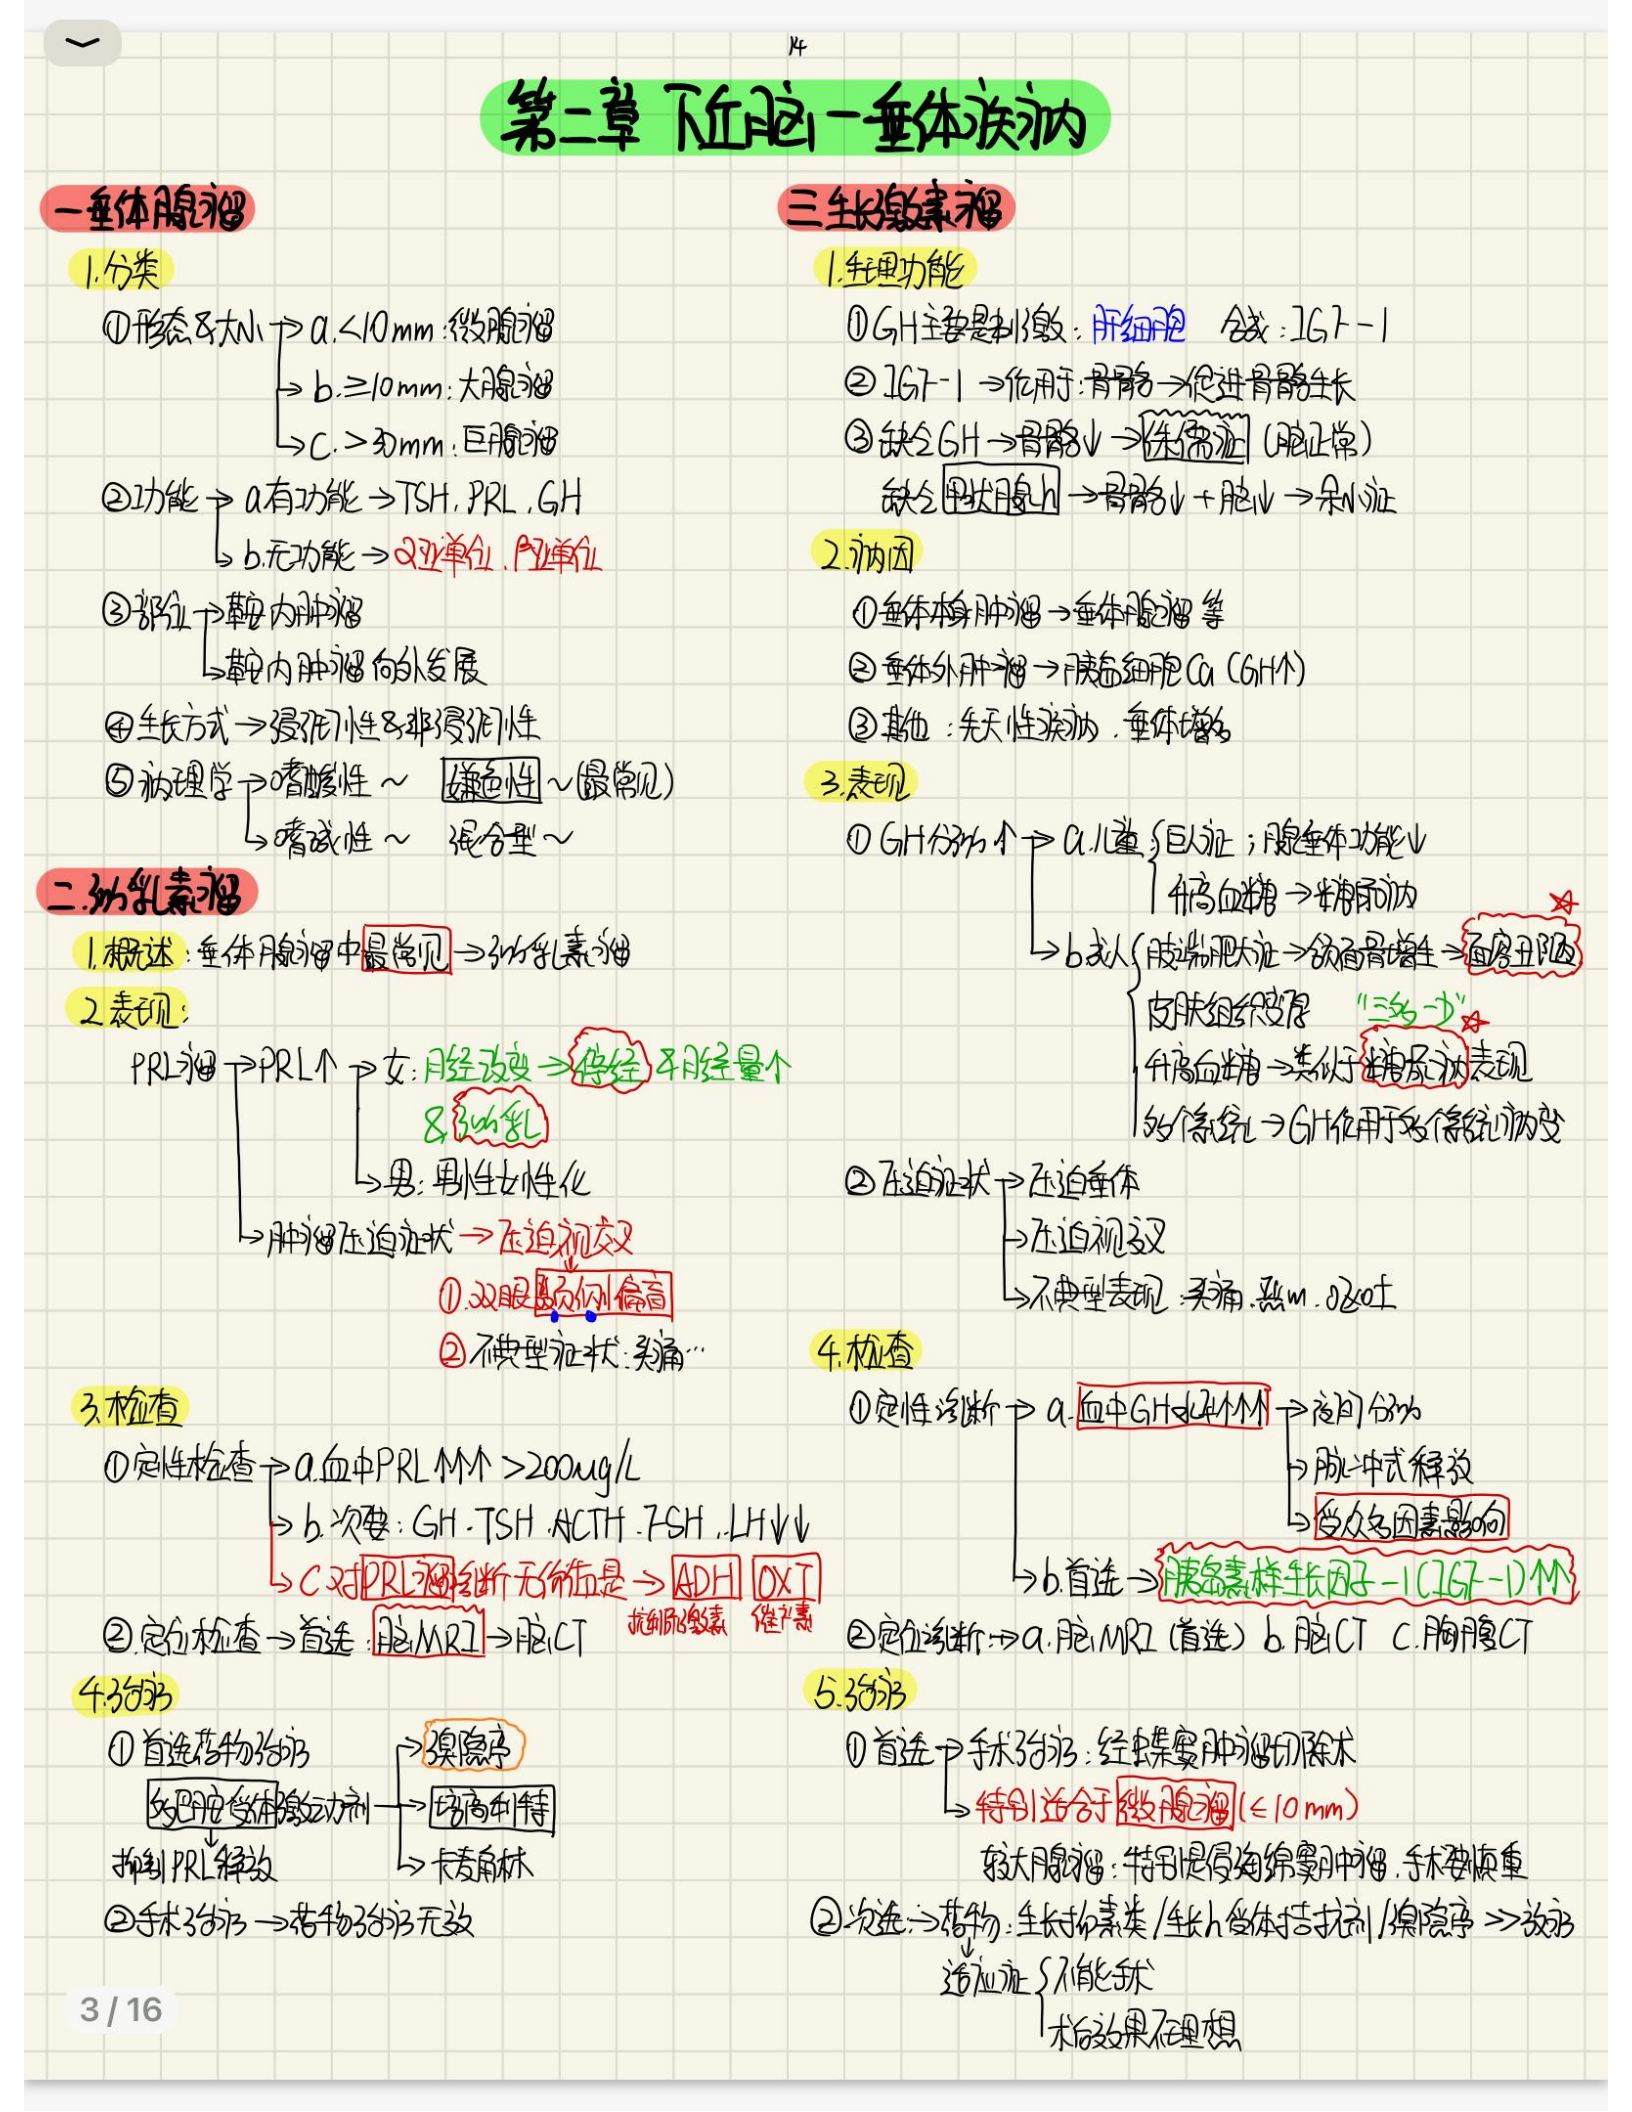 14
第二章 下丘脑-垂体疾病
一 垂体腺瘤
1.分类
①形态&大小→a.<10mm:微腺瘤
→b.≥10mm:大腺瘤
→c.>30mm:巨腺瘤
②功能→a有功能→TSH.PRL.GH
→b.无功能→α亚单位.β亚单位
③部位→鞍内肿瘤
→鞍内肿瘤向外发展
④生长方式→侵袭性&非侵袭性
⑤病理学→嗜酸性~ 嫌色性~(最常见)
→嗜碱性~ 混合型~
二.泌乳素瘤
1.概述:垂体腺瘤中最常见→泌乳素瘤
2.表现:
PRL瘤→PRL↑→女:月经改变→停经&月经量个
&泌乳
→男:男性女性化
→肿瘤压迫症状→压迫视交叉
↓
①.双眼颞侧偏盲
②不典型症状:头痛…
3.检查
①定性检查→a.血中PRL↑↑↑>200μg/L
→b.次要:GH.TSH.ACTH.FSH.LH↓↓
→c对PRL瘤诊断无价值是→ADH OXT
抗利尿激素 催产素
②.定位检查→首选:脑MRI→脑CT
4.治疗
①首选药物治疗→溴隐亭
多巴胺受体激动剂→培高利特
↓
抑制PRL释放→卡麦角林
②手术治疗→药物治疗无效
三 生长激素瘤
1.生理功能
①GH主要是刺激:肝细胞 合成:IGF-1
②IGF-1→作用于:骨骼→促进骨骼生长
③缺乏GH→骨骼↓→侏儒症(脑正常)
缺乏甲状腺h→骨骼↓+脑↓→呆小症
2.病因
①垂体本身肿瘤→垂体腺瘤等
②垂体外肿瘤→胰岛细胞Ca(GH个)
③其他:先天性疾病.垂体增多
3.表现
①GH分泌个→a.儿童{巨人症;腺垂体功能↓
升高血糖→糖尿病
→b成人{肢端肥大症→颌面骨增生→面容丑陋
皮肤组织变厚 "三多一少"
升高血糖→类似于糖尿病表现
多个系统→GH作用于多个系统病变
②压迫症状→压迫垂体
→压迫视交叉
→不典型表现:头痛.恶m.呕吐
4.检查
①定性诊断→a.血中GH水平↑↑↑→夜间分泌
→脉冲式释放
→受众多因素影响
→b.首选→胰岛素样生长因子-1(IGF-1)↑↑
②定位诊断:→a.脑MRI(首选) b.脑CT c.胸腹CT
5.治疗
①首选→手术治疗:经蝶窦肿瘤切除术
→特别适合于微腺瘤(≤10mm)
较大腺瘤:特别是侵海绵窦肿瘤.手术要慎重
②次选:→药物:生长抑素类/生长h受体拮抗剂/溴隐亭>>放疗
↓
适应证{不能手术
术后效果不理想
3/16